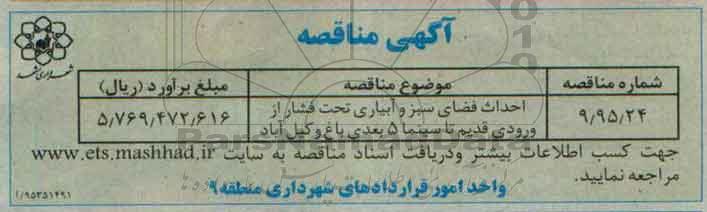 آگهی مناقصه
شهرداری مشهد
شماره مناقصه موضوع مناقصه مبلغ برآورد (ریال)
۹٫۹۵٫۲۴ احداث فضای سبز و آبیاری تحت فشار از ورودی قدیم تا سینما ۵ بعدی باغ وکیل آباد ۵٫۷۶۹٫۴۷۲٫۶۱۶
جهت کسب اطلاعات بیشتر ودریافت اسناد مناقصه به سایت www.ets.mashhad.ir
مراجعه نمایید.
واحد امور قراردادهای شهرداری منطقه ۹
/۹۵۳۵۱۴۹۱
ParsNamadData